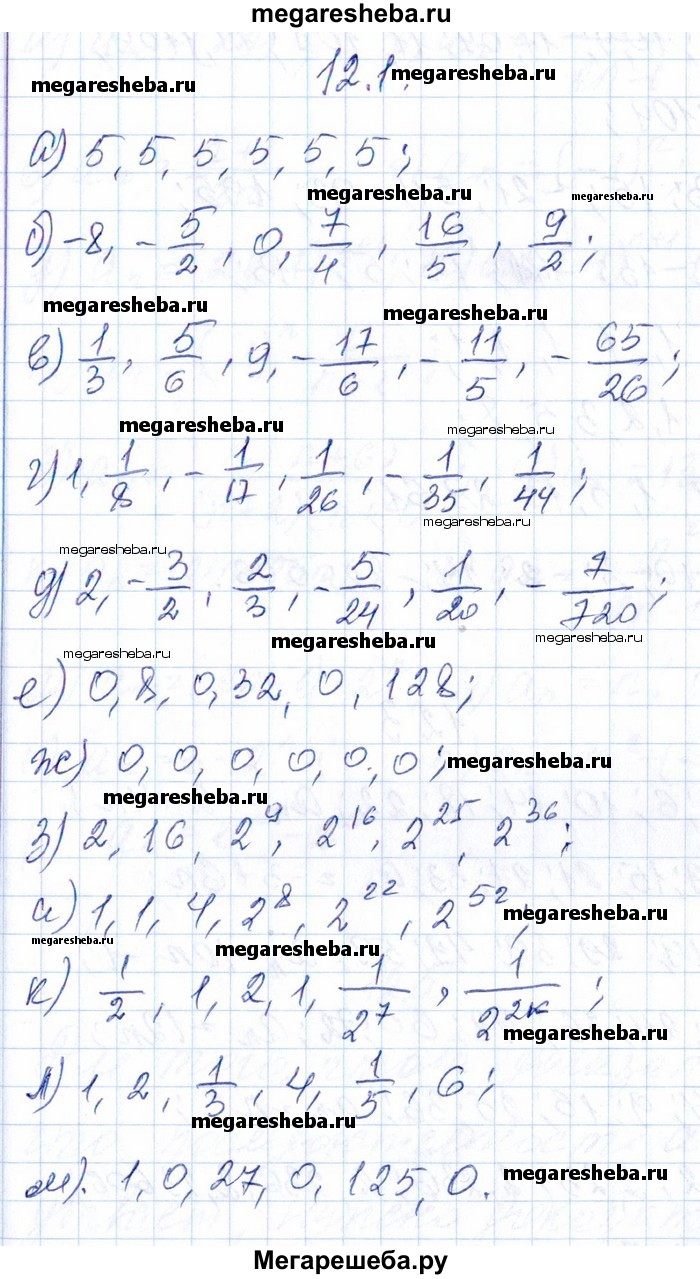 megaresheba.ru
12.1.
megaresheba.ru megaresheba.ru
а) 5, 5, 5, 5, 5, 5;
megaresheba.ru megaresheba.ru
б) -8, -5/2, 0, 7/4, 16/5, 9/2;
megaresheba.ru megaresheba.ru
в) 1/3, 5/6, 9, -17/6, -11/5, -65/26;
megaresheba.ru megaresheba.ru
г) 1, 1/8, -1/17, 1/26, -1/35, 1/44;
megaresheba.ru
megaresheba.ru
д) 2, -3/2, 2/3, -5/24, 1/20, -7/720;
megaresheba.ru megaresheba.ru
megaresheba.ru
е) 0,8, 0,32, 0,128;
ж) 0, 0, 0, 0, 0, 0; megaresheba.ru
megaresheba.ru
з) 2, 16, 2^9, 2^16, 2^25, 2^36;
и) 1, 1, 4, 2^8, 2^22, 2^52; megaresheba.ru
megaresheba.ru megaresheba.ru
к) 1/2, 1, 2, 1, 1/2^7, 1/2^2к;
megaresheba.ru
л) 1, 2, 1/3, 4, 1/5, 6;
megaresheba.ru
м). 1, 0, 27, 0, 125, 0. megaresheba.ru
Мегарешеба.ру